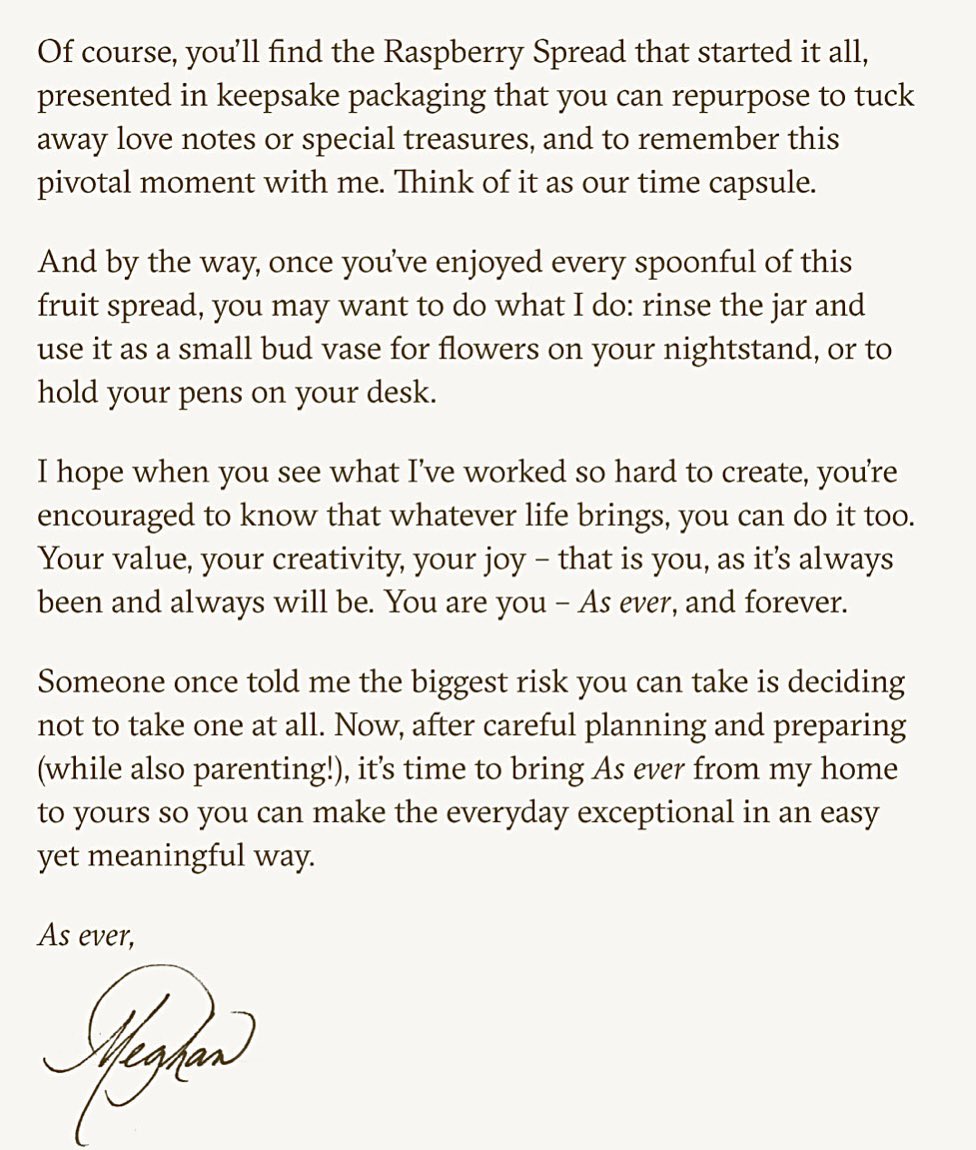 Of course, you’ll find the Raspberry Spread that started it all,
presented in keepsake packaging that you can repurpose to tuck
away love notes or special treasures, and to remember this
pivotal moment with me. Think of it as our time capsule.
And by the way, once you’ve enjoyed every spoonful of this
fruit spread, you may want to do what I do: rinse the jar and
use it as a small bud vase for flowers on your nightstand, or to
hold your pens on your desk.
I hope when you see what I’ve worked so hard to create, you’re
encouraged to know that whatever life brings, you can do it too.
Your value, your creativity, your joy – that is you, as it’s always
been and always will be. You are you – As ever, and forever.
Someone once told me the biggest risk you can take is deciding
not to take one at all. Now, after careful planning and preparing
(while also parenting!), it’s time to bring As ever from my home
to yours so you can make the everyday exceptional in an easy
yet meaningful way.
As ever,
Meghan